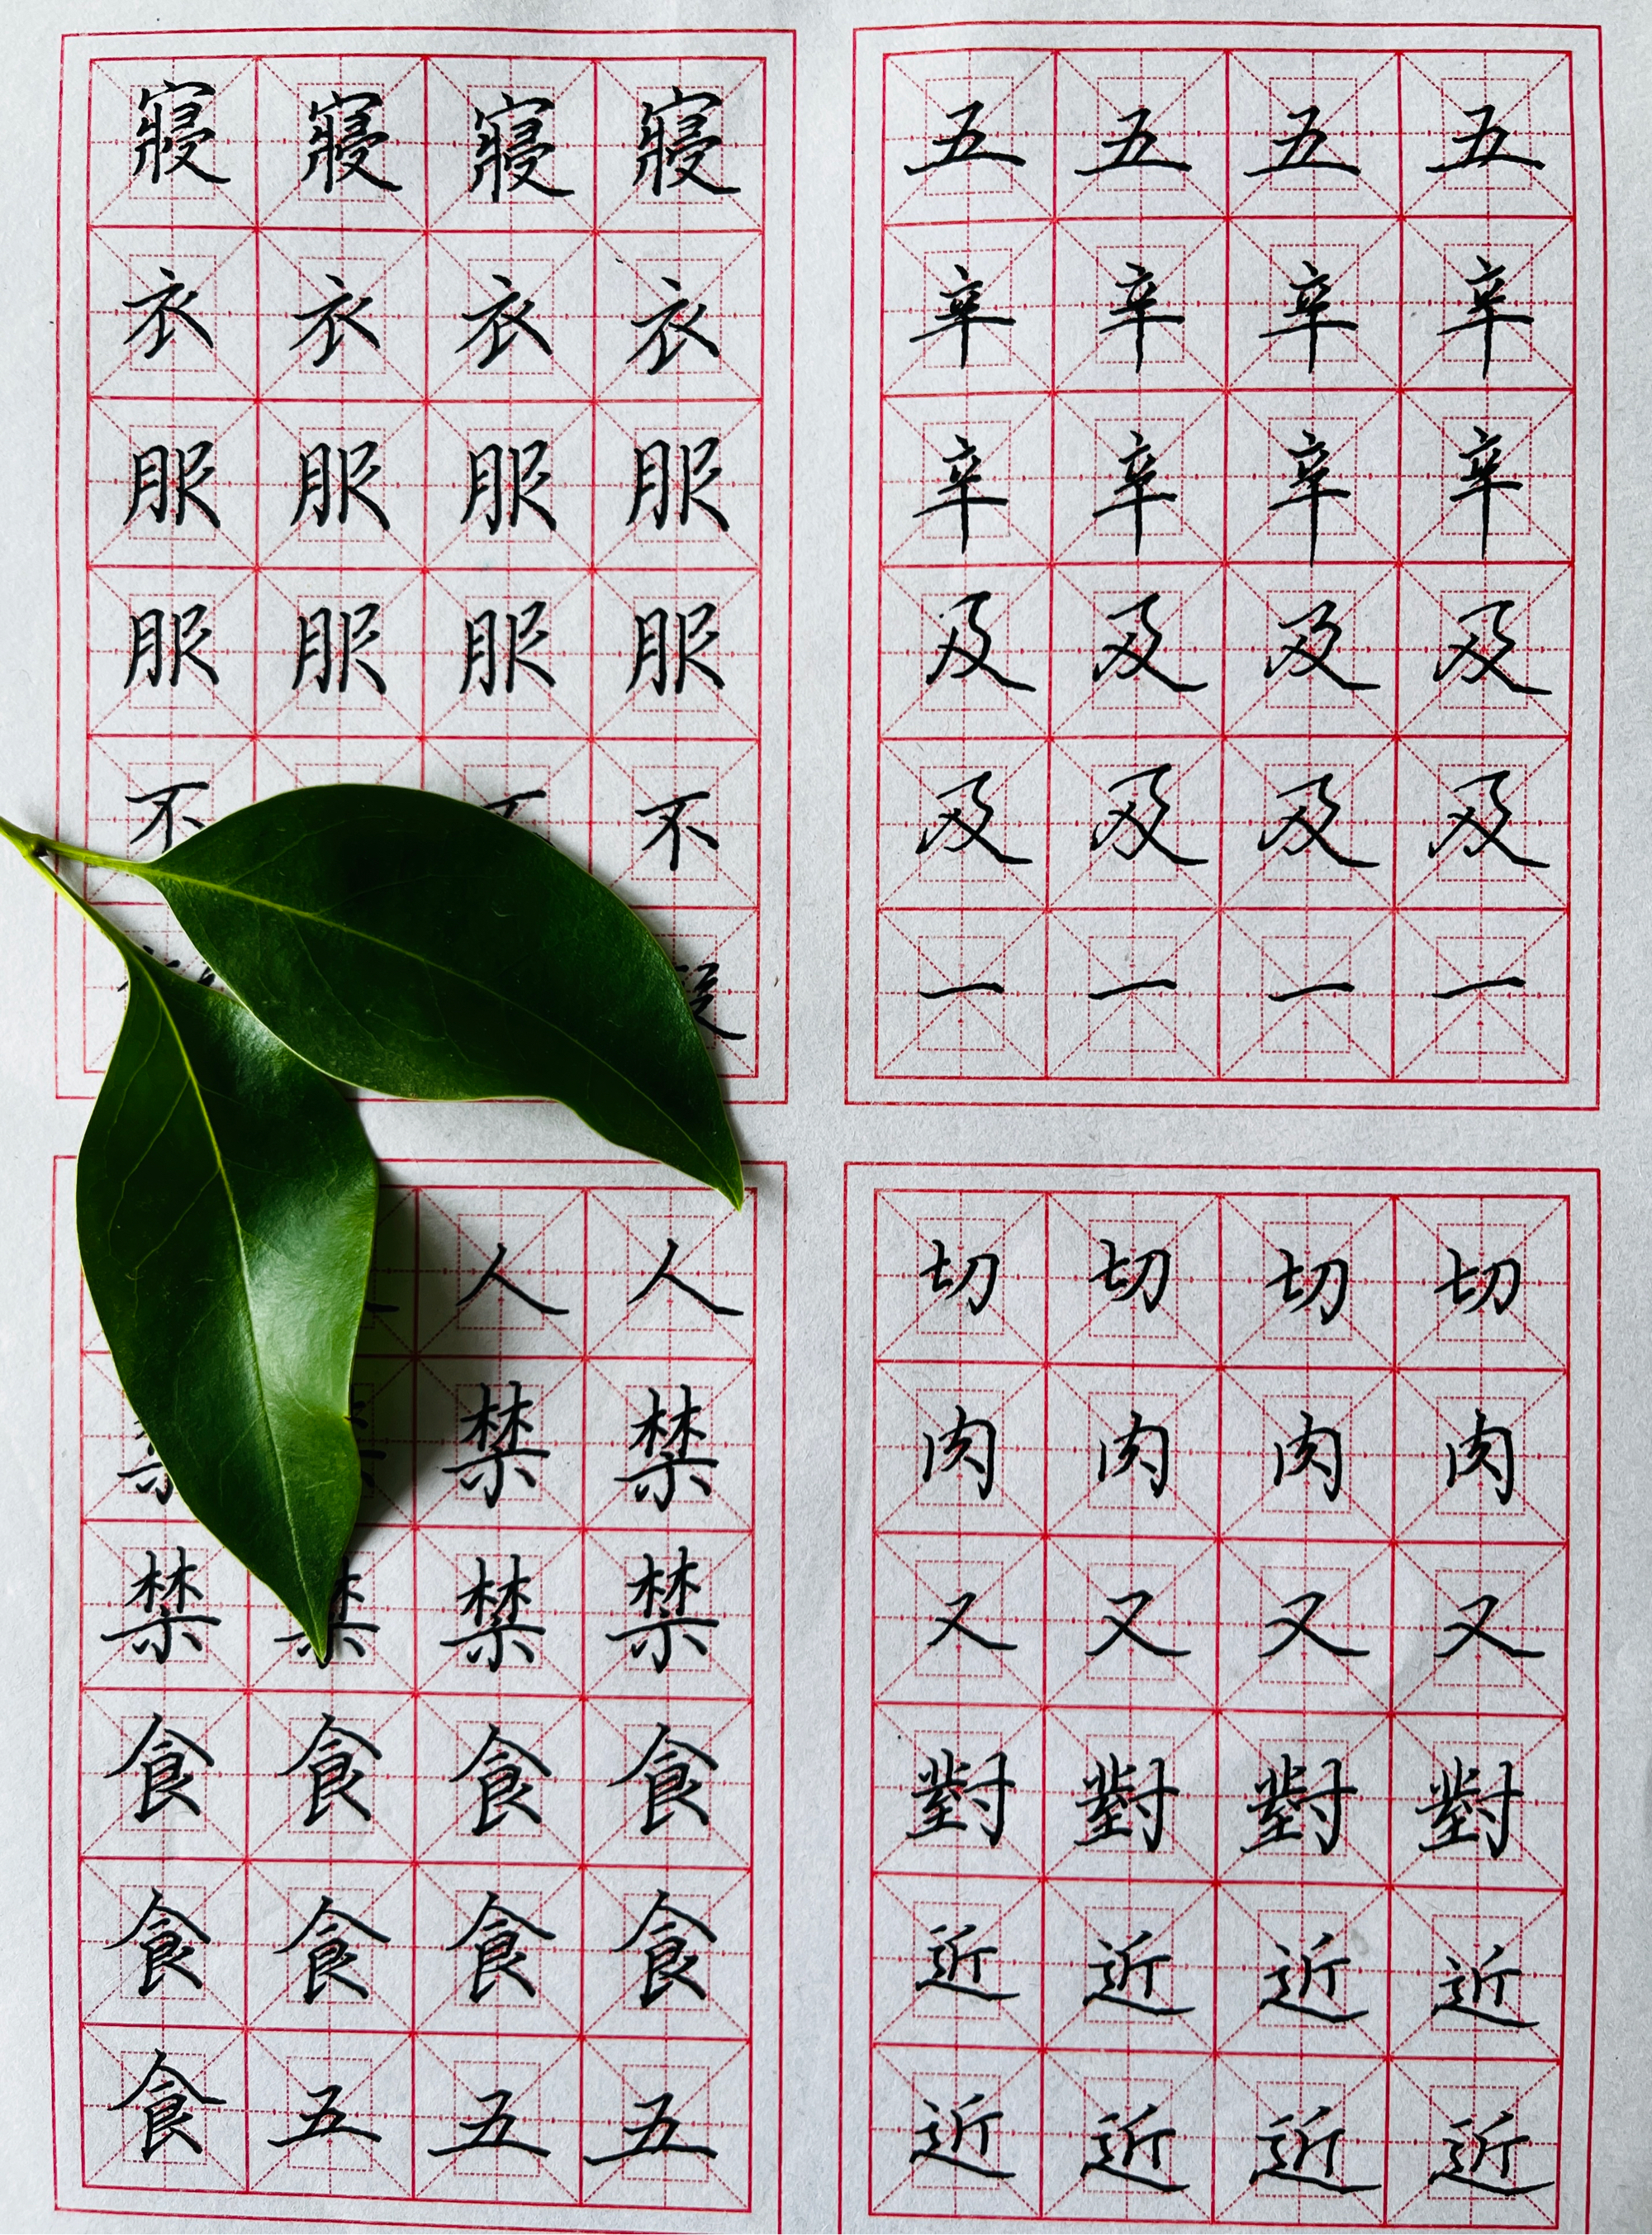 寢寢寢寢
衣衣衣衣
服服服服
服服服服
不不不
人人
禁禁
禁禁禁禁
食食食食
食食食食
食五五五
五五五五
辛辛辛辛
辛辛辛辛
及及及及
及及及及
一一一一
切切切切
肉肉肉肉
又又又又
對對對對
近近近近
近近近近